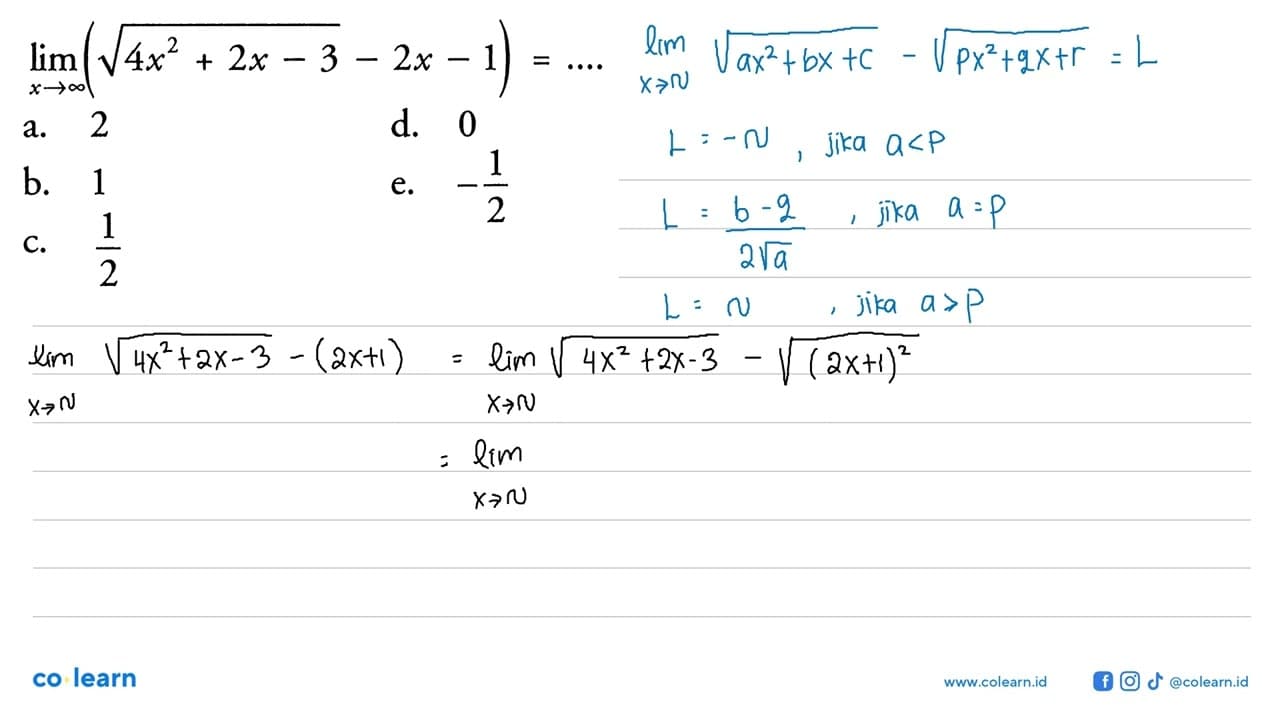 lim x→∞ (√(4x² + 2x − 3) − 2x − 1) = ....
a. 2
b. 1
c. 1/2
d. 0
e. −1/2
lim x→∞ √(ax²+bx+c) − √(px²+qx+r) = L
L = −∞ , jika a<p
L = (b−q)/(2√a) , jika a=p
L = ∞ , jika a>p
lim x→∞ √(4x²+2x−3) − (2x+1) = lim x→∞ √(4x²+2x−3) − √((2x+1)²)
= lim x→∞
co learn
www.colearn.id
@colearn.id